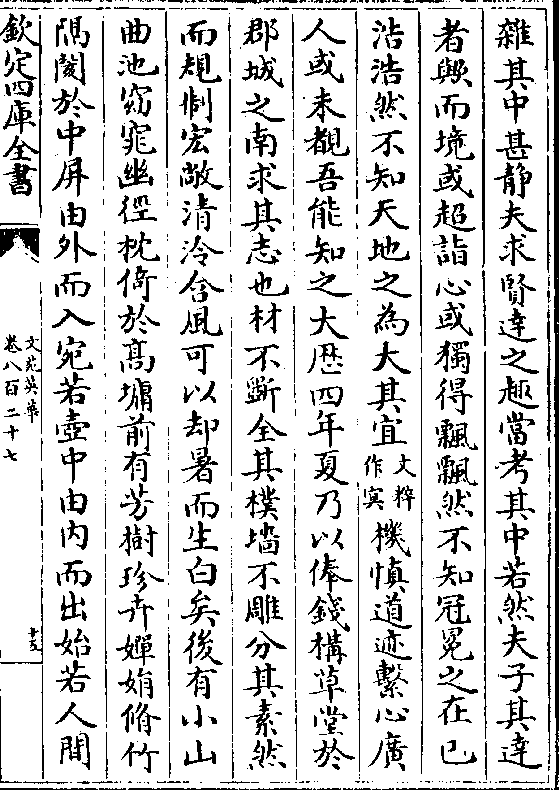 雜其中甚靜夫求賢達之趣當考其中若然夫子其達
者歟而境或超詣心或獨得飄飄然不知冠冕之在已
浩浩然不知天地之為大其宜文粹作寘機慎道迹繫心廣
人或未覩吾能知之大厯四年夏乃以俸錢構草堂於
郡城之南求其志也材不斵全其樸墻不雕分其素然
而規制宏敞清泠含風可以却暑而生白矣後有小山
曲池窈窕幽徑枕倚於髙墉前有芳樹珍卉嬋娟脩竹
隔閡於中屏由外而入宛若壺中由内而出始若人間
欽定四庫全書
文苑英華
卷八百二十七
十五